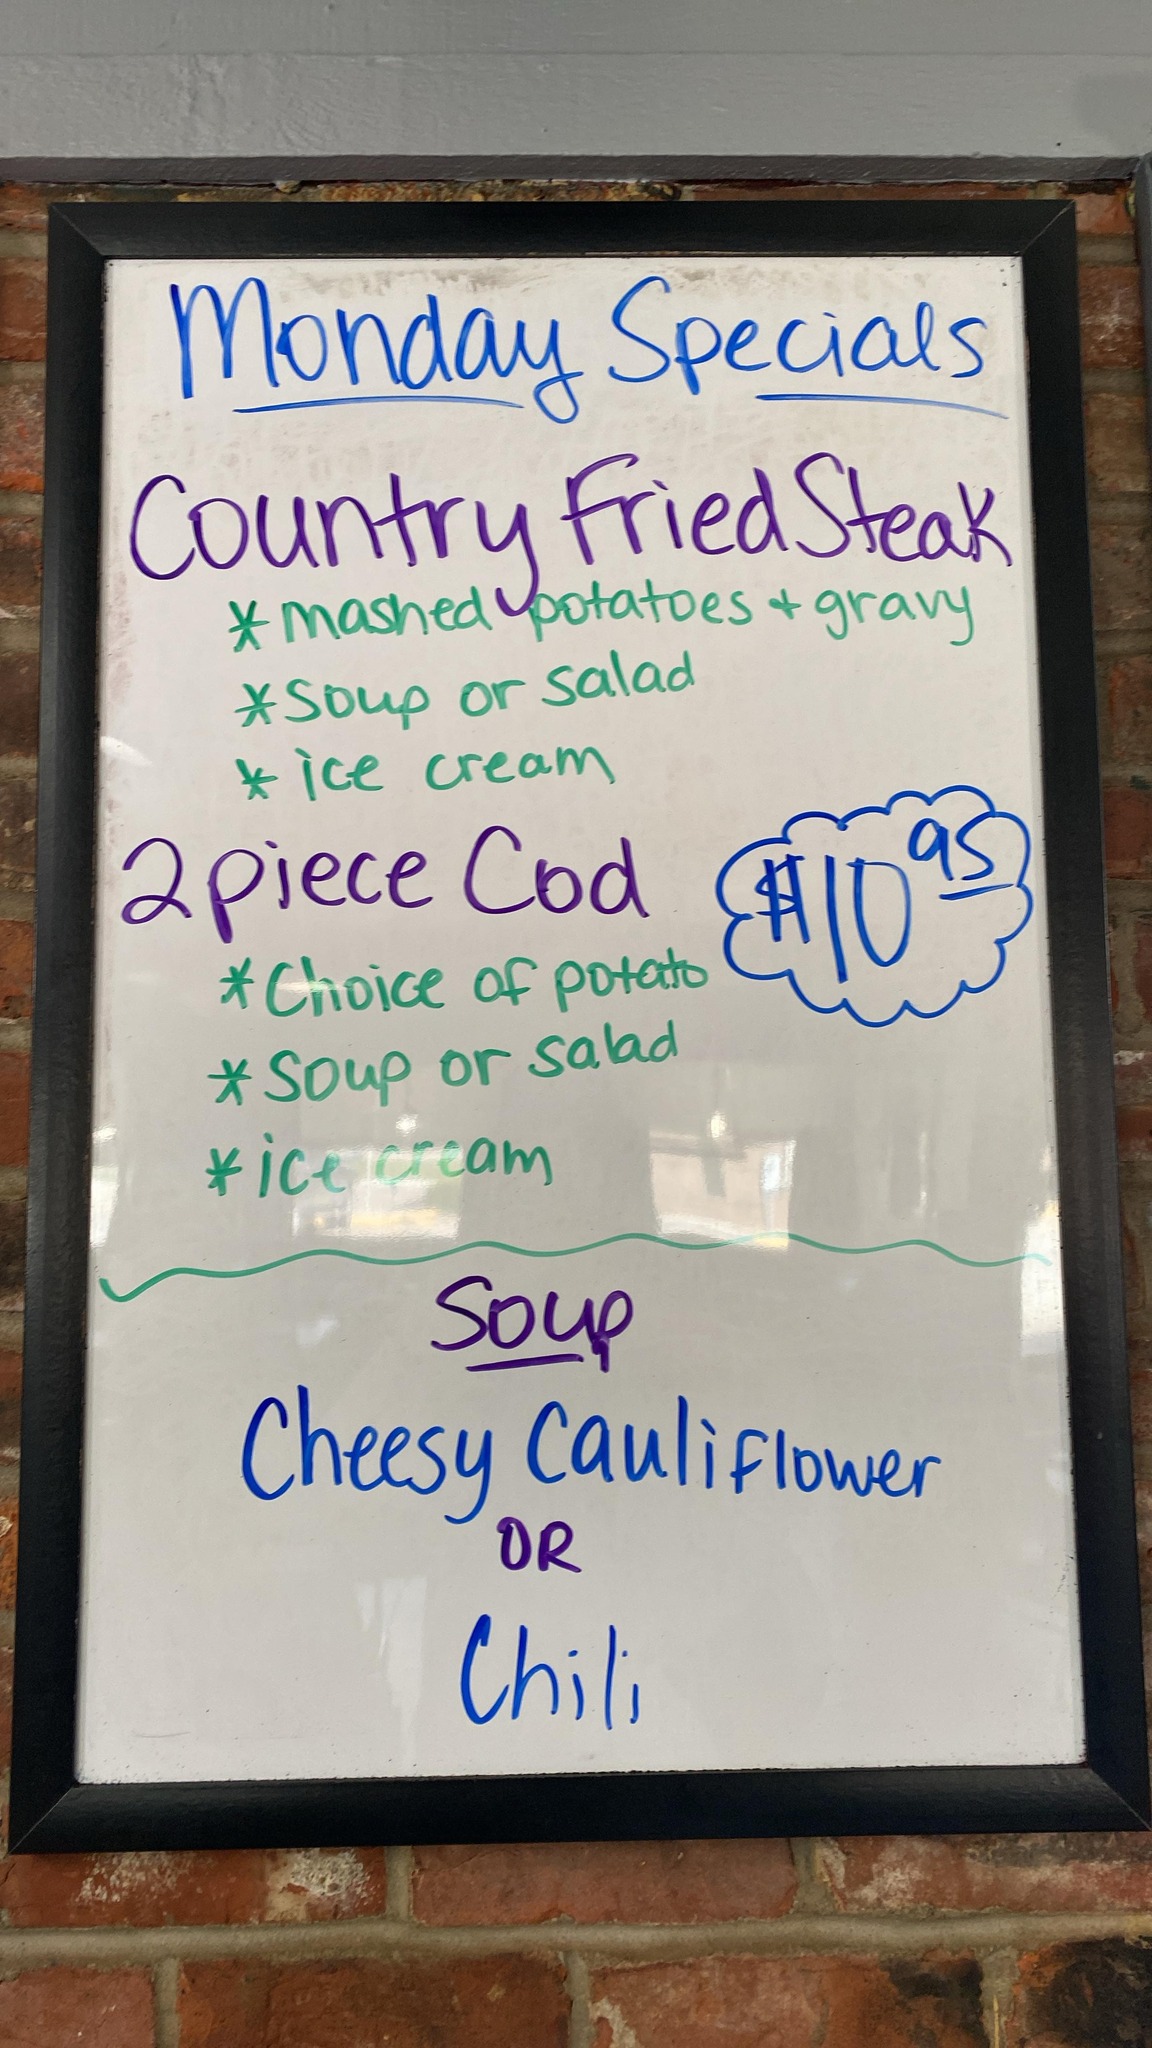 Monday Specials
Country Fried Steak
* mashed potatoes + gravy
* Soup or salad
* ice cream
2 piece Cod
$10 95
* Choice of potato
* Soup or salad
* ice cream
Soup
Cheesy Cauliflower
OR
Chili